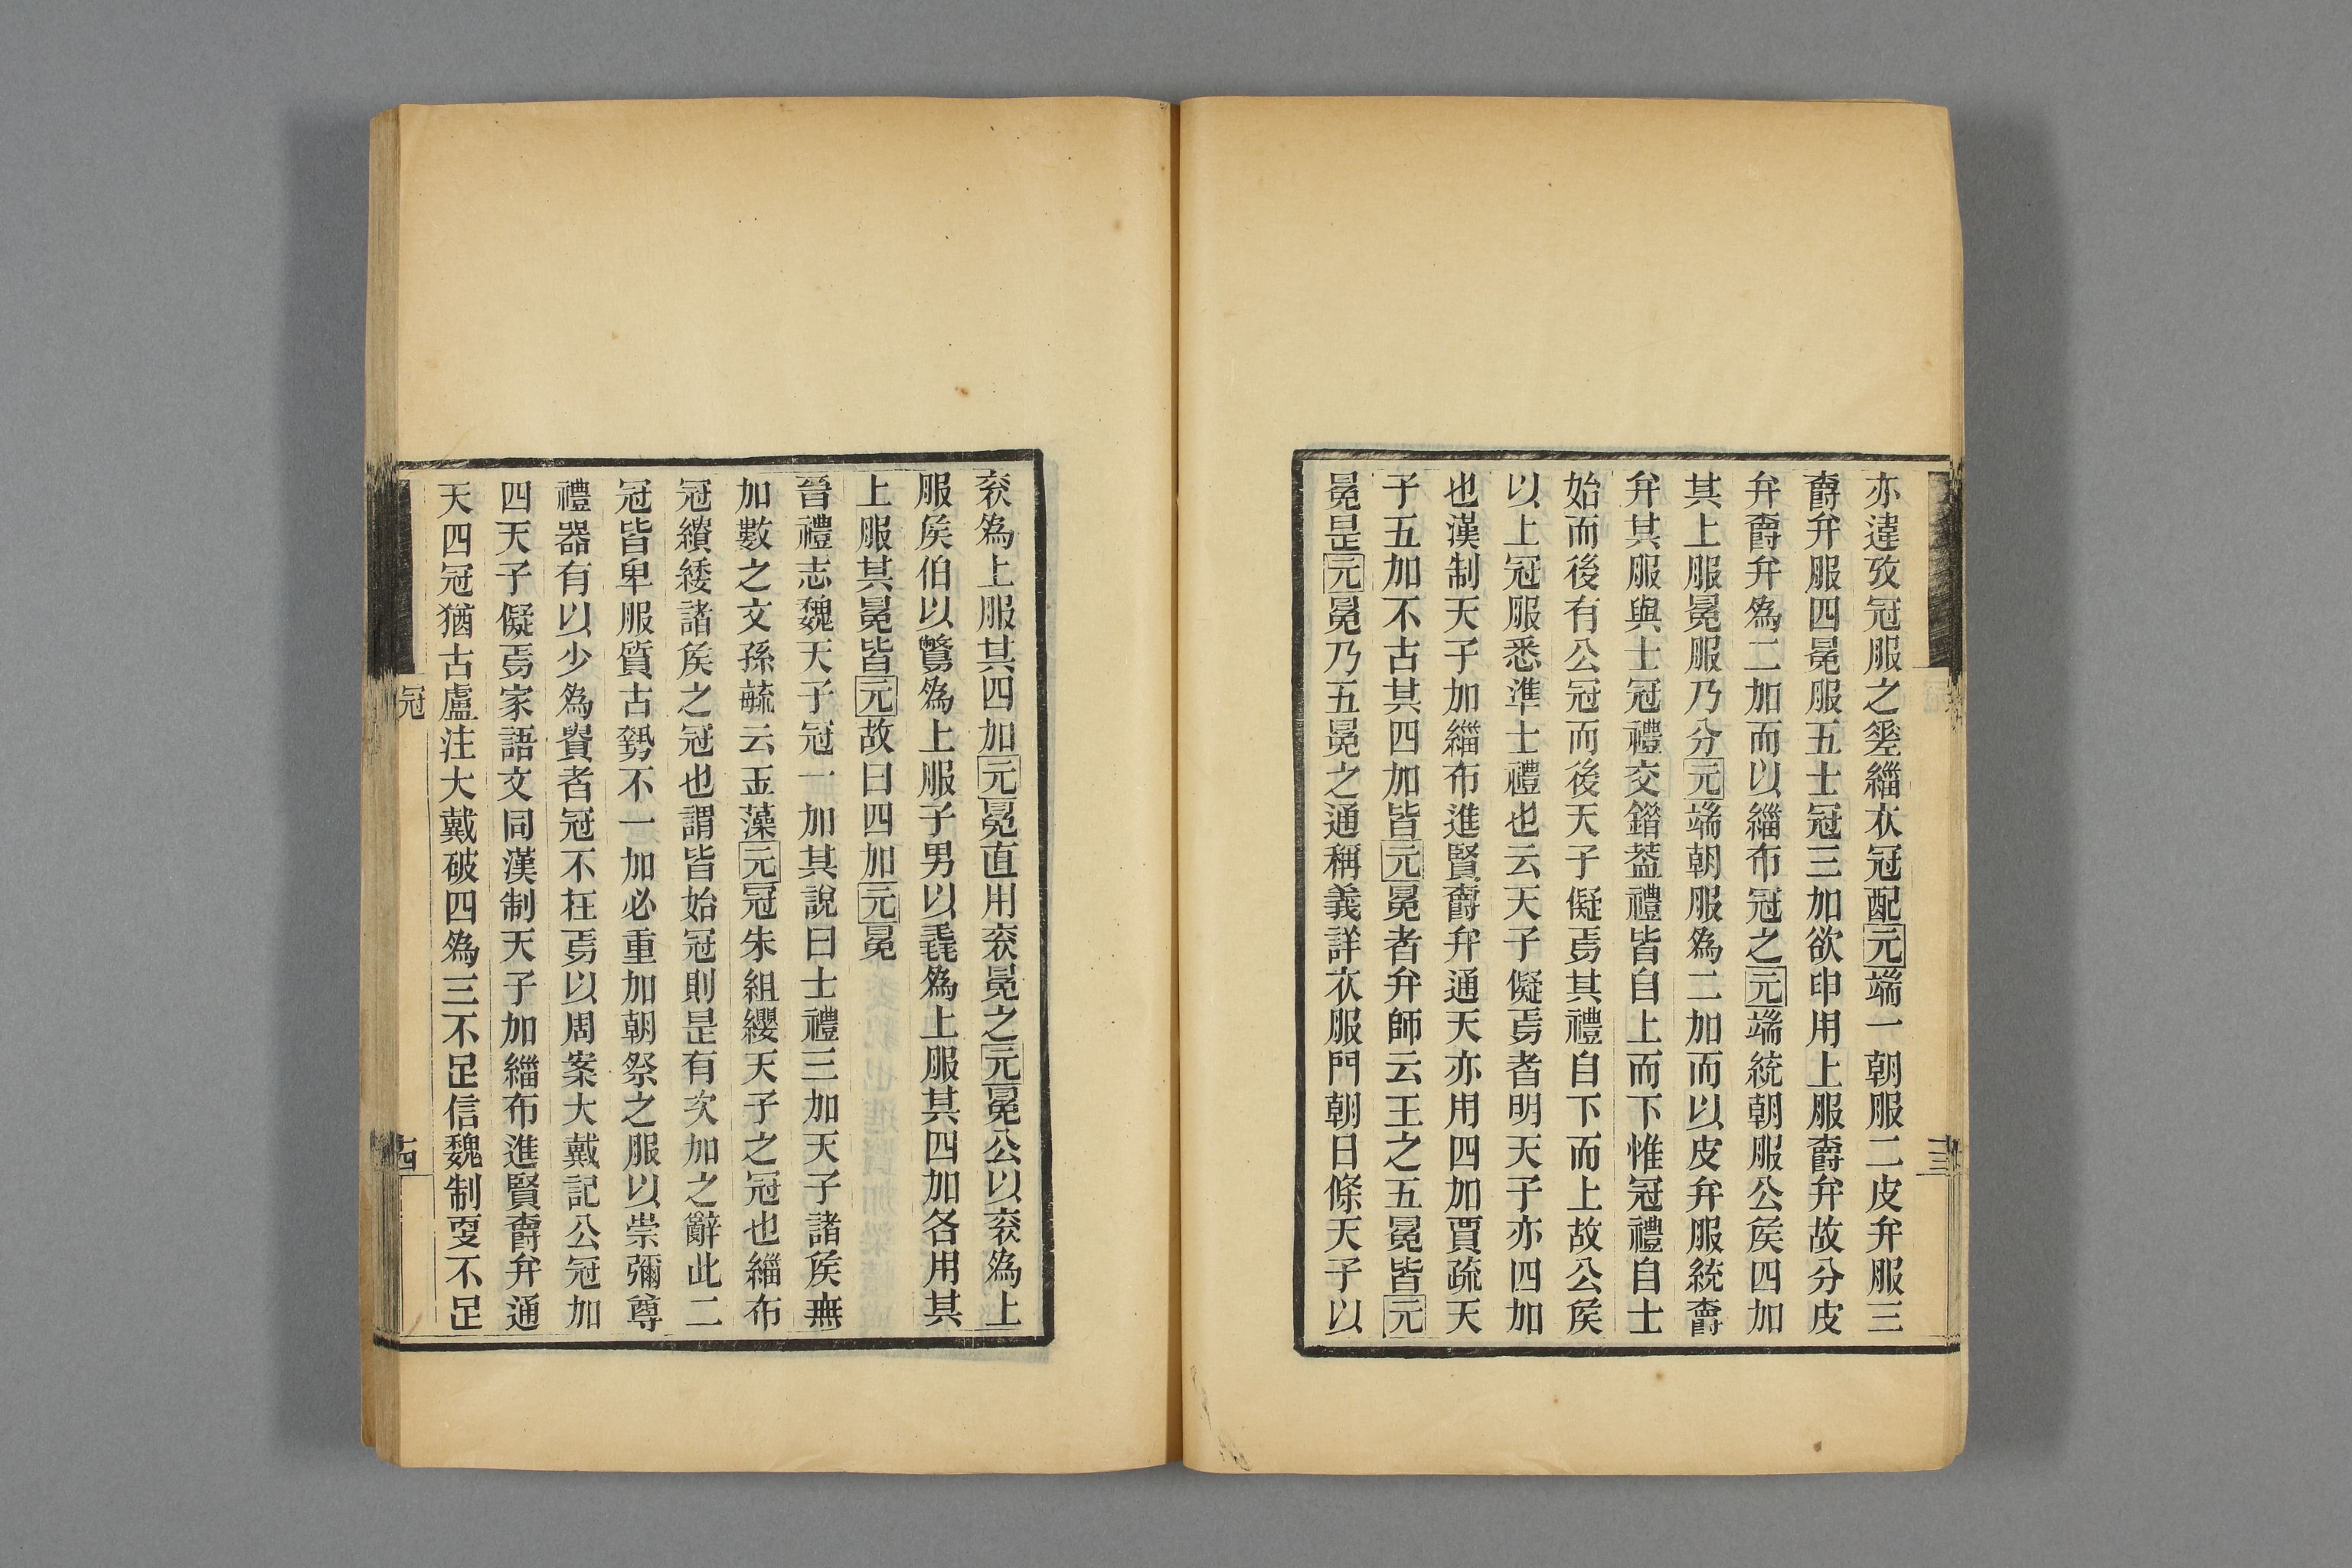 亦違攷冠服之䇓緇衣冠配元端一朝服二皮弁服三
爵弁服四冕服五士冠三加欲申用上服爵弁故分皮
弁爵弁爲二加而以緇布冠之元端統朝服公矦四加
其上服冕服乃分元端朝服爲二加而以皮弁服統爵
弁其服與士冠禮交錯葢禮皆自上而下惟冠禮自士
始而後有公冠而後天子儗焉其禮自下而上故公矦
以上冠服悉準士禮也云天子儗焉者明天子亦四加
也漢制天子加緇布進賢爵弁通天亦用四加賈疏天
子五加不古其四加皆元冕者弁師云王之五冕皆元
冕是元冕乃五冕之通稱義詳衣服門朝日條天子以
袞爲上服其四加元冕直用袞冕之元冕公以袞爲上
服矦伯以鷩爲上服子男以毳爲上服其四加各用其
上服其冕皆元故曰四加元冕
晉禮志魏天子冠一加其說曰士禮三加天子諸矦無
加數之文孫毓云玉藻元冠朱組纓天子之冠也緇布
冠繢緌諸矦之冠也謂皆始冠則是有次加之辭此二
冠皆卑服質古勢不一加必重加朝祭之服以崇彌尊
禮器有以少爲貴者冠不在焉以周案大戴記公冠加
四天子儗焉家語文同漢制天子加緇布進賢爵弁通
天四冠猶古盧注大戴破四爲三不足信魏制㪅不足
冠
十四
十三